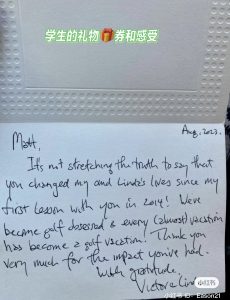 学生的礼物🎁券和感受
Aug, 2023.
Matt,
It's not stretching the truth to say that
you changed my and Linda's lives since my
first lesson with you in 2014! We've
become golf obsessed & every (almost) vacation
has become a golf vacation. Thank you
very much for the impact you've had.
With gratitude,
Victoria Lin
小红书
小红书 ID: Eason21